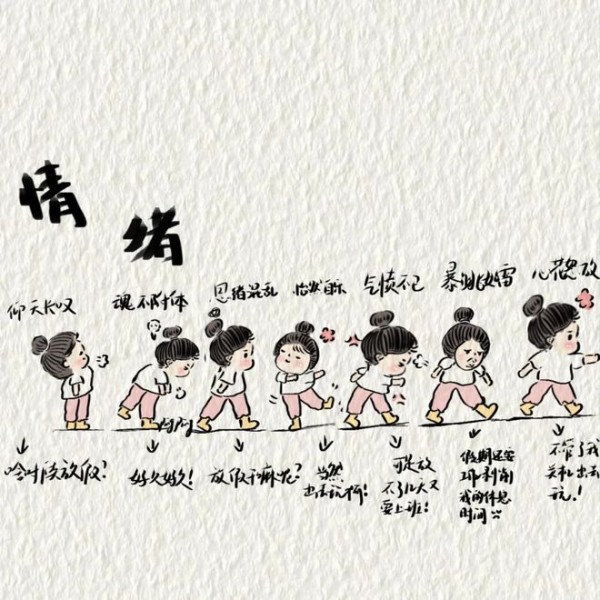 情绪
仰天长叹
魂不附体
思绪混乱
怡然自乐
气愤不已
暴跳如雷
心花怒放
啥时候放假?
好久好久!
放假干嘛呢?
当然
出去玩啊!
可是放
不了几天又
要上班!
假期还要
剥削
我的休息
时间
不管了我
关机出去
玩!